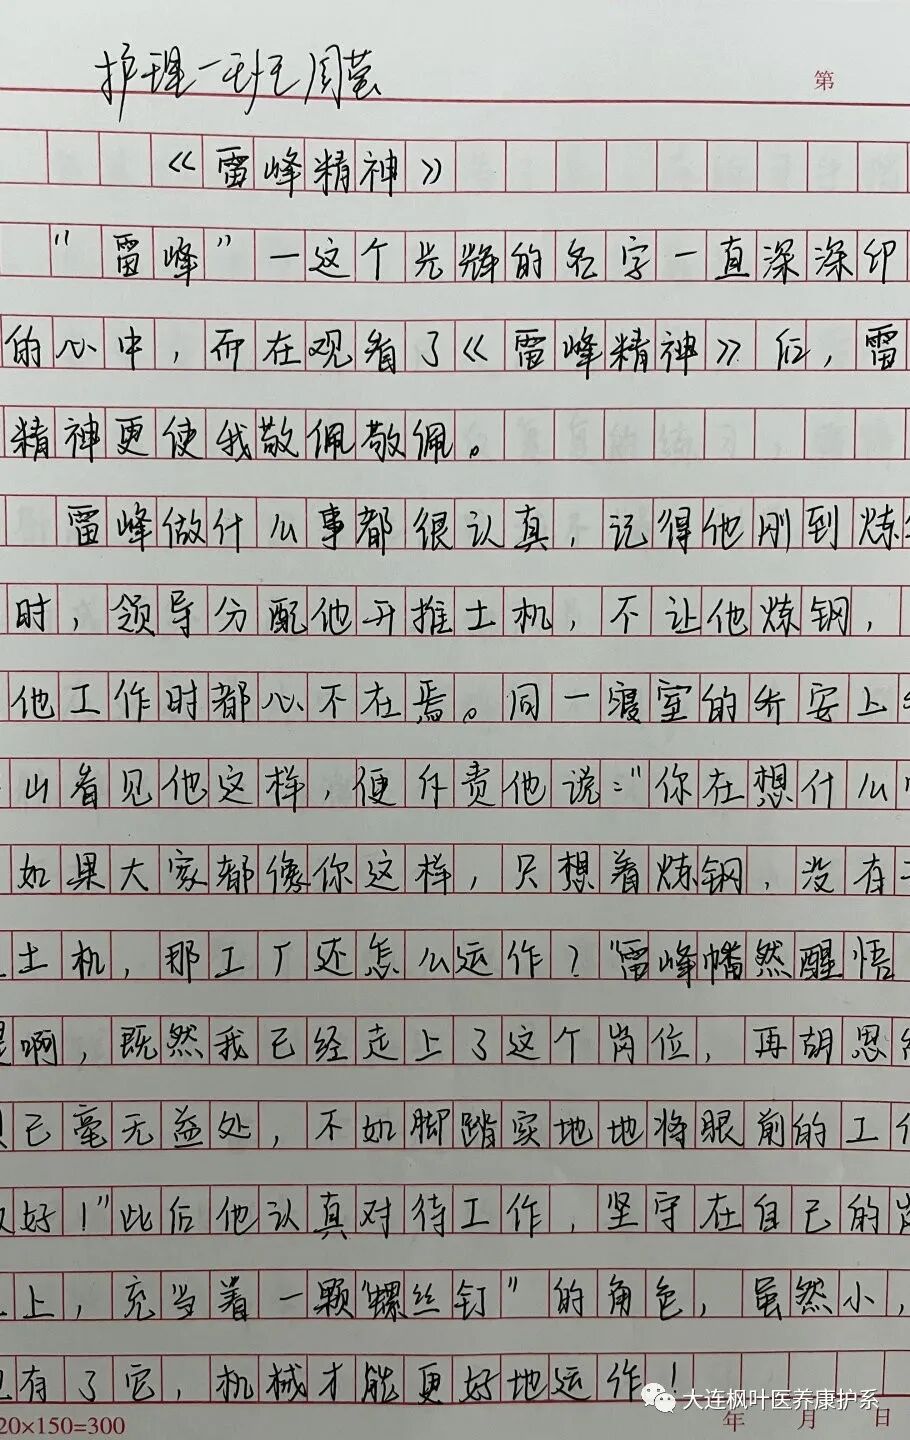 护理一班 周莹
第
《雷峰精神》
“雷峰”一这个光辉的名字一直深深印
的心中，而在观看了《雷峰精神》后，雷
精神更使我敬佩敬佩。
雷峰做什么事都很认真，记得他刚到炼
时，领导分配他开推土机，不让他炼钢，
他工作时都心不在焉。同一寝室的乔安上
山看见他这样，便斥责他说：“你在想什么
如果大家都像你这样，只想着炼钢，没有
土机，那工厂还怎么运作？”雷峰幡然醒悟
是啊，既然我已经走上了这个岗位，再胡思
已毫无益处，不如脚踏实地地将眼前的工作
好！”此后他认真对待工作，坚守在自己的岗
上，充当着一颗“螺丝钉”的角色，虽然小，
有了它，机械才能更好地运作！
20×150=300
年 月 日
大连枫叶医养康护系